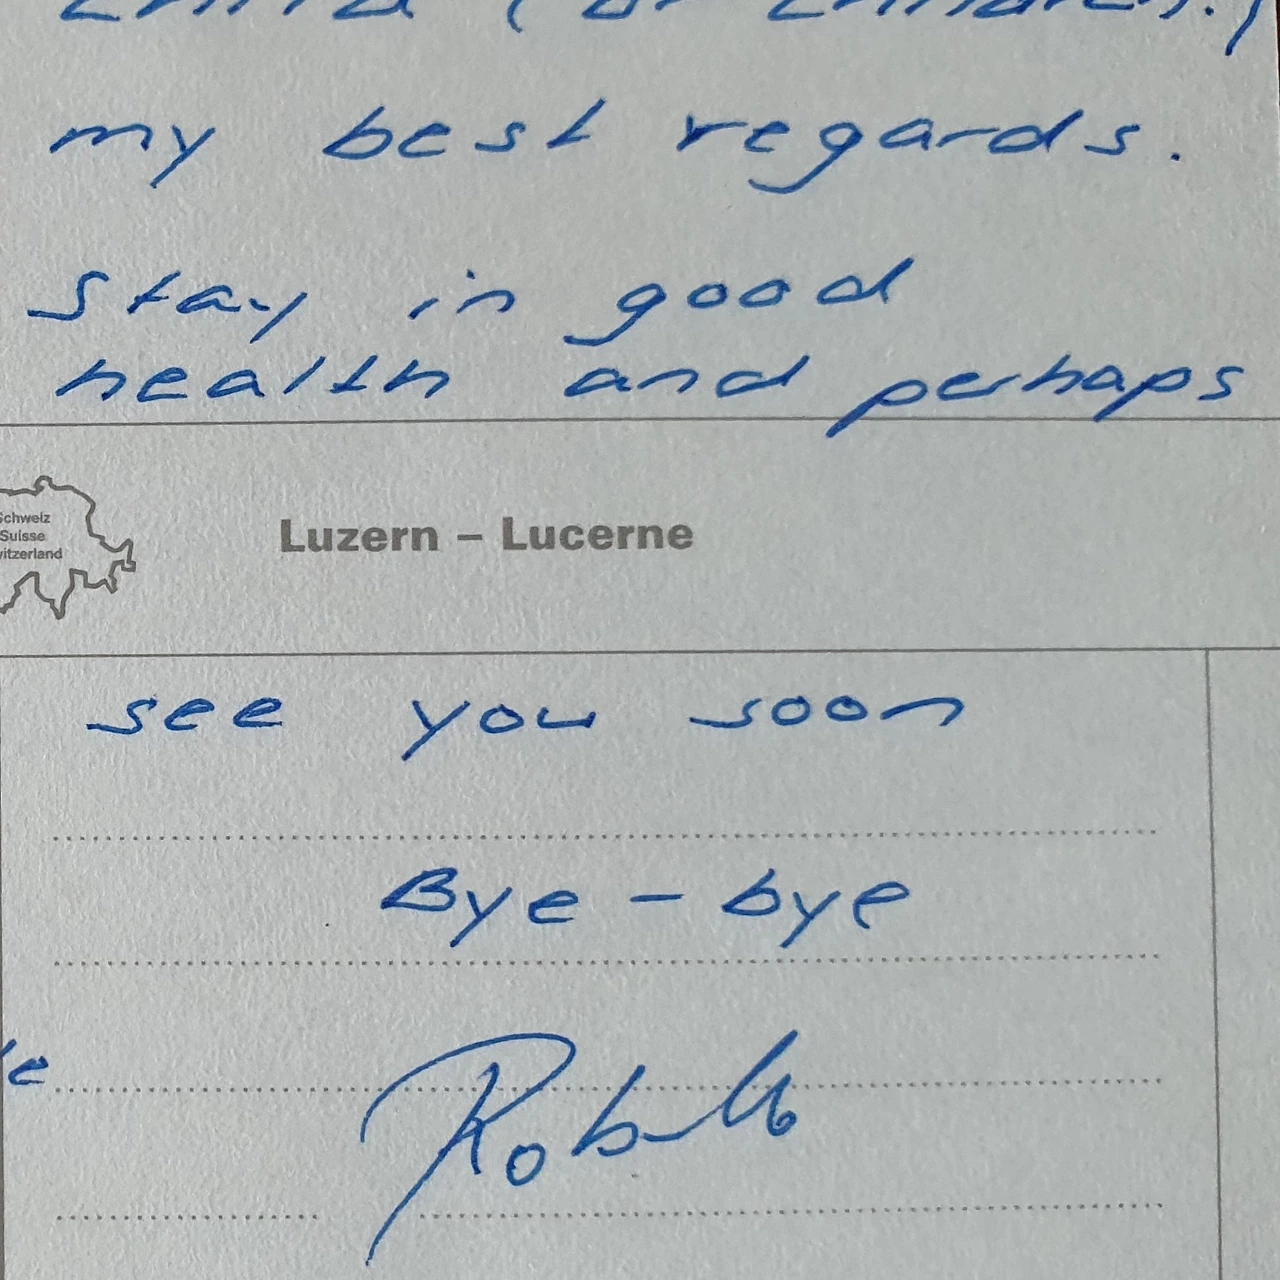 child (or children?)
my best regards.
Stay in good
health and perhaps
Schweiz
Suisse
Switzerland
Luzern – Lucerne
see you soon
Bye - bye